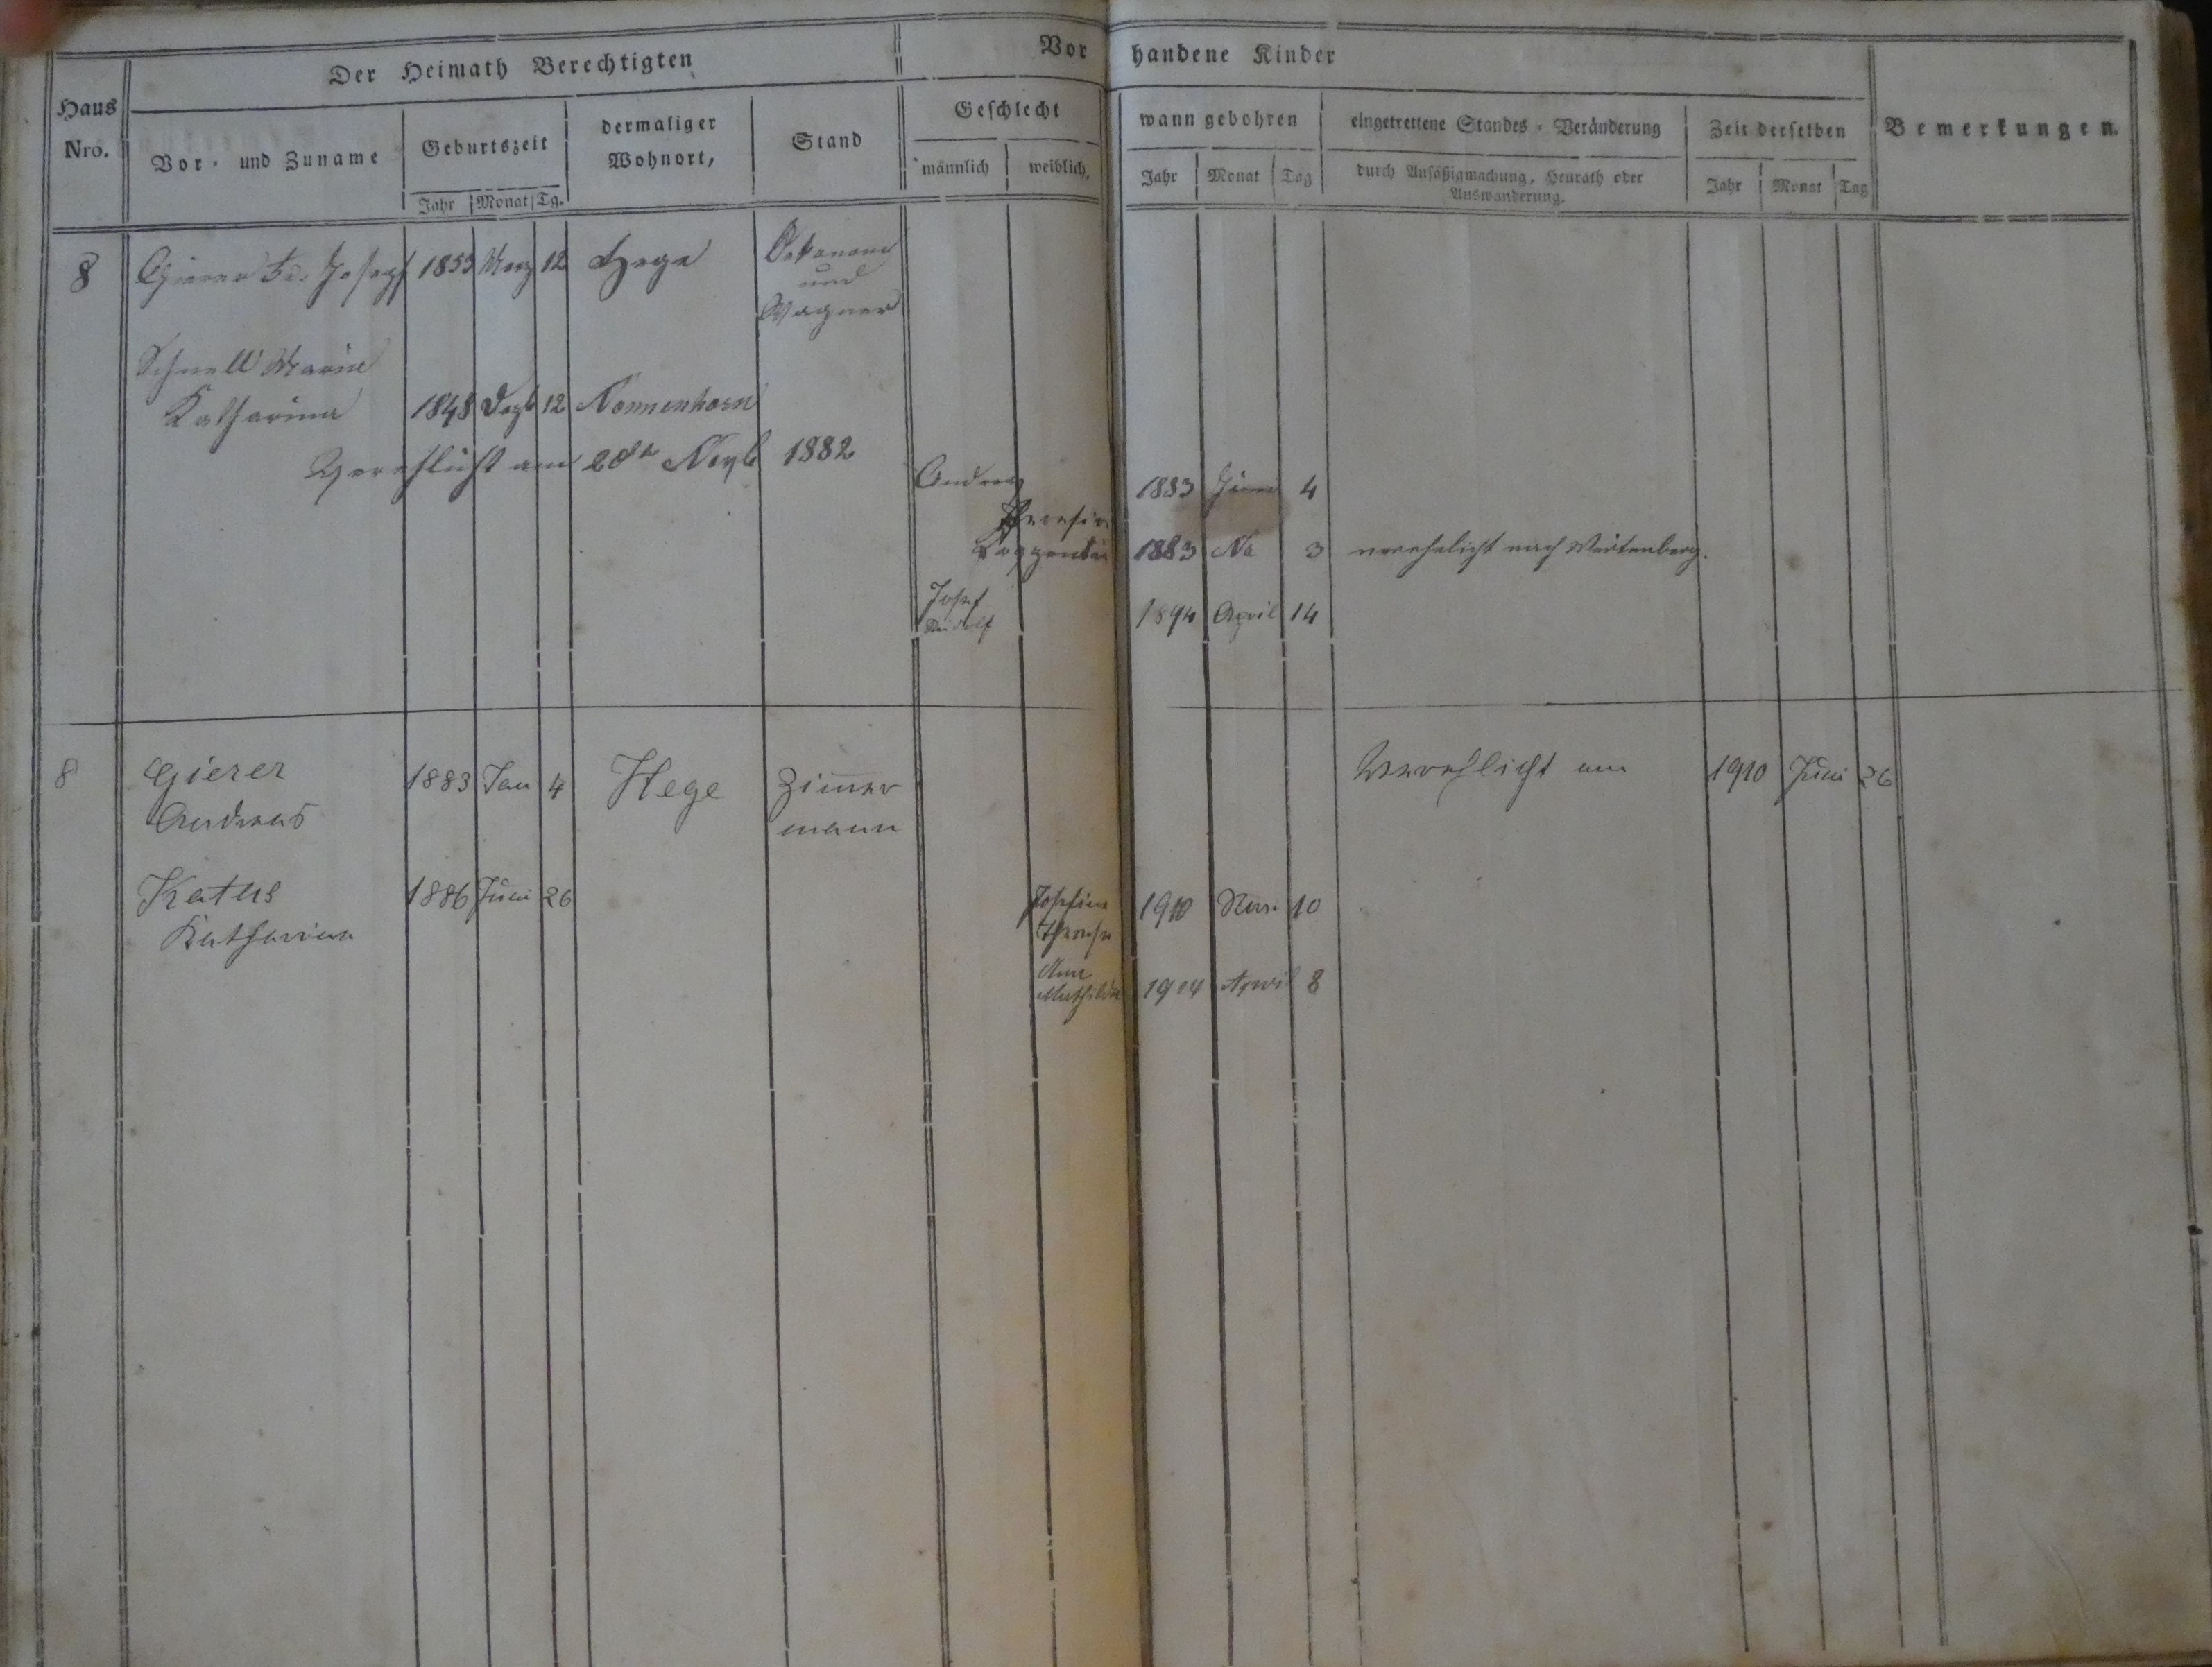 Der Heimath Berechtigten
Vorhandene Kinder
Haus Nro.
Vor- und Zuname
Geburtszeit
Jahr Monat Tg.
dermaliger Wohnort,
Stand
Geschlecht
männlich weiblich.
wann gebohren
Jahr Monat Tag
eingetrettene Standes-Veränderung
durch Ansäßigmachung, Heurath oder
Auswanderung.
Zeit derselben
Jahr Monat Tag
Bemerkungen.
8 Gierer Josepf 1853 Merz 12 Hege Oekonom
und
Wagner
Schnell Maria
Katharina 1848 Dezb 12 Nonnenhorn
Verehlicht am 1882
Andreas 1883 4
Theresia
1883 3 verehelicht nach Würtenberg.
Josef
Rudolf 1894 April 14
8 Gierer
Andreas 1883 Jan 4 Hege Zimmer
mann
Verehlicht am 1910 Juni 26
Katharina 1886 Juni 26
Josefine
Therese 1910 10
Anna
Mathilde April 8